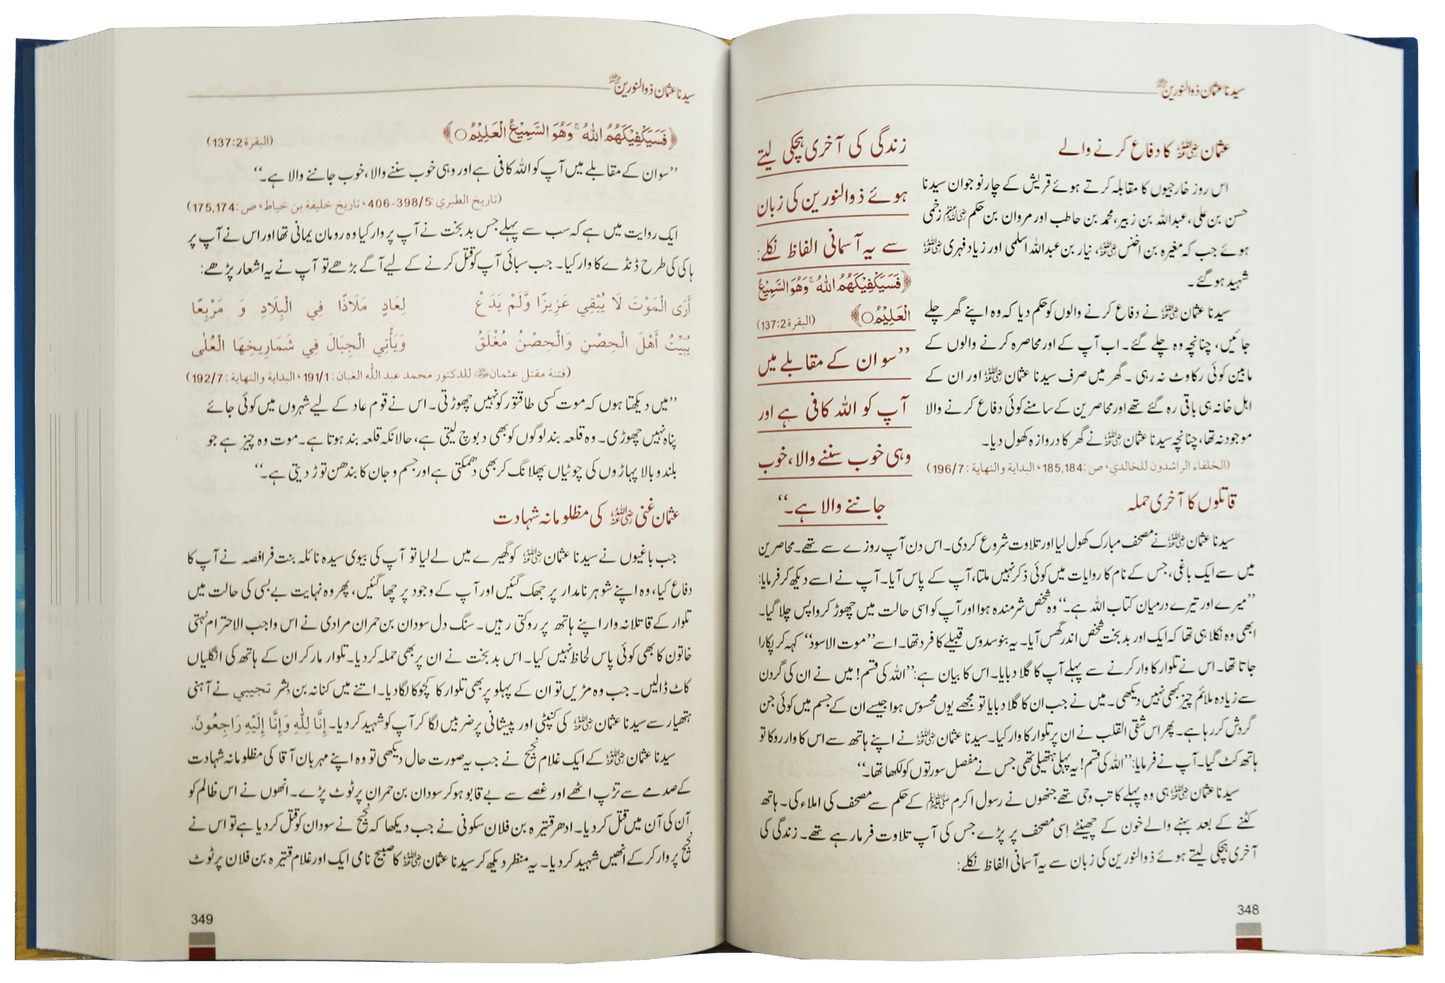 سیدنا عثمان ذوالنورین رضی اللہ عنہ
عثمان رضی اللہ عنہ کا دفاع کرنے والے
اس روز خارجیوں کا مقابلہ کرتے ہوئے قریش کے چار نوجوان سیدنا
حسن بن علی، عبداللہ بن زبیر، محمد بن حاطب اور مروان بن حکم رضی اللہ عنہم زخمی
ہوئے جب کہ مغیرہ بن اخنس رضی اللہ عنہ، نیار بن عبداللہ اسلمی اور زیاد فہری رضی اللہ عنہ
شہید ہو گئے۔
سیدنا عثمان رضی اللہ عنہ نے دفاع کرنے والوں کو حکم دیا کہ وہ اپنے گھر چلے
جائیں، چنانچہ وہ چلے گئے۔ اب آپ کے اور محاصرہ کرنے والوں کے
مابین کوئی رکاوٹ نہ رہی۔ گھر میں صرف سیدنا عثمان رضی اللہ عنہ اور ان کے
اہل خانہ ہی باقی رہ گئے تھے اور محاصرین کے سامنے کوئی دفاع کرنے والا
موجود نہ تھا، چنانچہ سیدنا عثمان رضی اللہ عنہ نے گھر کا دروازہ کھول دیا۔
(الخلفاء الراشدون للخالدي، ص: 185,184، البداية والنهاية: 196/7)
زندگی کی آخری ہچکی لیتے
ہوئے ذوالنورین کی زبان
سے یہ آسمانی الفاظ نکلے:
﴿فَسَيَكْفِيكَهُمُ اللّٰهُ ۚ وَهُوَ السَّمِيْعُ
الْعَلِيْمُ○﴾ (البقرة 137:2)
”سو ان کے مقابلے میں
آپ کو اللہ کافی ہے اور
وہی خوب سننے والا، خوب
جاننے والا ہے۔“
قاتلوں کا آخری حملہ
سیدنا عثمان رضی اللہ عنہ نے مصحف مبارک کھول لیا اور تلاوت شروع کر دی۔ اس دن آپ روزے سے تھے۔ محاصرین
میں سے ایک باغی، جس کے نام کا روایات میں کوئی ذکر نہیں ملتا، آپ کے پاس آیا۔ آپ نے اسے دیکھ کر فرمایا:
”میرے اور تیرے درمیان کتاب اللہ ہے۔“ وہ شخص شرمندہ ہوا اور آپ کو اسی حالت میں چھوڑ کر واپس چلا گیا۔
ابھی وہ نکلا ہی تھا کہ ایک اور بدبخت شخص اندر گھس آیا۔ یہ بنو سدوس قبیلے کا فرد تھا۔ اسے ”موت الاسود“ کہہ کر پکارا
جاتا تھا۔ اس نے تلوار کا وار کرنے سے پہلے آپ کا گلا دبایا۔ اس کا بیان ہے: ”اللہ کی قسم! میں نے ان کی گردن
سے زیادہ ملائم چیز کبھی نہیں دیکھی۔ میں نے جب ان کا گلا دبایا تو مجھے یوں محسوس ہوا جیسے ان کے جسم میں کوئی جن
گردش کر رہا ہے۔ پھر اس شقی القلب نے ان پر تلوار کا وار کیا۔ سیدنا عثمان رضی اللہ عنہ نے اپنے ہاتھ سے اس کا وار روکا تو
ہاتھ کٹ گیا۔ آپ نے فرمایا: ”اللہ کی قسم! یہ پہلی ہتھیلی تھی جس نے مفصل سورتوں کو لکھا تھا۔“
سیدنا عثمان رضی اللہ عنہ ہی وہ پہلے کاتب وحی تھے جنھوں نے رسول اکرم ﷺ کے حکم سے مصحف کی املاء کی۔ ہاتھ
کٹنے کے بعد بہنے والے خون کے چھینٹے اسی مصحف پر پڑے جس کی آپ تلاوت فرما رہے تھے۔ زندگی کی
آخری ہچکی لیتے ہوئے ذوالنورین کی زبان سے یہ آسمانی الفاظ نکلے:
348
سیدنا عثمان ذوالنورین رضی اللہ عنہ
﴿فَسَيَكْفِيكَهُمُ اللّٰهُ ۚ وَهُوَ السَّمِيْعُ الْعَلِيْمُ○﴾ (البقرة 137:2)
”سو ان کے مقابلے میں آپ کو اللہ کافی ہے اور وہی خوب سننے والا، خوب جاننے والا ہے۔“
(تاريخ الطبري: 398/5-406، تاريخ خليفة بن خياط، ص: 175,174)
ایک روایت میں ہے کہ سب سے پہلے جس بدبخت نے آپ پر وار کیا وہ رومان یمانی تھا اور اس نے آپ پر
ہاکی کی طرح ڈنڈے کا وار کیا۔ جب سبائی آپ کو قتل کرنے کے لیے آگے بڑھے تو آپ نے یہ اشعار پڑھے:
أَرَى الْمَوْتَ لَا يُبْقِي عَزِيزًا وَّلَمْ يَدَعْ لِعَادٍ مَلَاذًا فِي الْبِلَادِ وَ مَرْبَعًا
يُبَيِّتُ أَهْلَ الْحِصْنِ وَالْحِصْنُ مُغْلَقٌ وَيَأْتِي الْجِبَالَ فِي شَمَارِيخِهَا الْعُلٰى
(فتنة مقتل عثمان رضی اللہ عنہ للدكتور محمد عبد اللّٰه الغبان: 191/1، البداية والنهاية: 192/7)
”میں دیکھتا ہوں کہ موت کسی طاقتور کو نہیں چھوڑتی۔ اس نے قوم عاد کے لیے شہروں میں کوئی جائے
پناہ نہیں چھوڑی۔ وہ قلعہ بند لوگوں کو بھی دبوچ لیتی ہے، حالانکہ قلعہ بند ہوتا ہے۔ موت وہ چیز ہے جو
بلند و بالا پہاڑوں کی چوٹیاں پھلانگ کر بھی دھمکتی ہے اور جسم و جان کا بندھن توڑ دیتی ہے۔“
عثمان غنی رضی اللہ عنہ کی مظلومانہ شہادت
جب باغیوں نے سیدنا عثمان رضی اللہ عنہ کو گھیرے میں لے لیا تو آپ کی بیوی سیدہ نائلہ بنت فرافصہ نے آپ کا
دفاع کیا، وہ اپنے شوہر نامدار پر جھک گئیں اور آپ کے وجود پر چھا گئیں، پھر وہ نہایت بے بسی کی حالت میں
تلوار کے قاتلانہ وار اپنے ہاتھ پر روکتی رہیں۔ سنگ دل سودان بن حمران مرادی نے اس واجب الاحترام نہتی
خاتون کا بھی کوئی پاس لحاظ نہیں کیا۔ اس بدبخت نے ان پر بھی حملہ کر دیا۔ تلوار مار کر ان کے ہاتھ کی انگلیاں
کاٹ ڈالیں۔ جب وہ مڑیں تو ان کے پہلو پر بھی تلوار کا کچوکا لگا دیا۔ اتنے میں کنانہ بن بشر تجیبی نے آہنی
ہتھیار سے سیدنا عثمان رضی اللہ عنہ کی کنپٹی اور پیشانی پر ضربیں لگا کر آپ کو شہید کر دیا۔ إِنَّا لِلّٰهِ وَإِنَّا إِلَيْهِ رَاجِعُونَ.
سیدنا عثمان رضی اللہ عنہ کے ایک غلام نجیح نے جب یہ صورت حال دیکھی تو وہ اپنے مہربان آقا کی مظلومانہ شہادت
کے صدمے سے تڑپ اٹھے اور غصے سے بے قابو ہو کر سودان بن حمران پر ٹوٹ پڑے۔ انھوں نے اس ظالم کو
آن کی آن میں قتل کر دیا۔ ادھر قتیرہ بن فلان سکونی نے جب دیکھا کہ نجیح نے سودان کو قتل کر دیا ہے تو اس نے
نجیح پر وار کر کے انھیں شہید کر دیا۔ یہ منظر دیکھ کر سیدنا عثمان رضی اللہ عنہ کا صبیح نامی ایک اور غلام قتیرہ بن فلان پر ٹوٹ
349